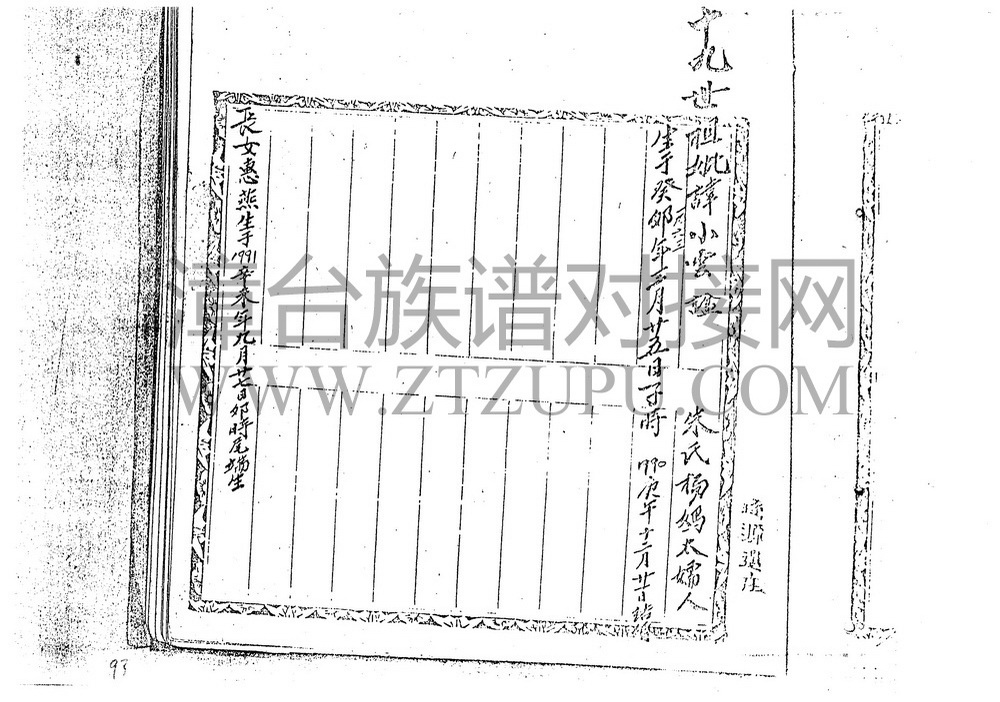 十九世祖妣諱小雲 朱氏楊媽太孺人
一九六三
生于癸卯年三月廿五日丁時 1990庚午十二月廿日結婚
長女惠燕生于1991辛未年九月廿七日卯時尾端生
源
93
漳台族谱对接网
WWW.ZTZUPU.COM